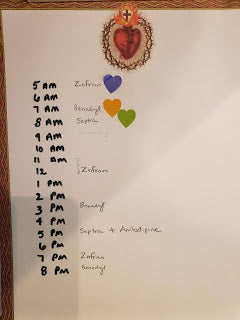 5 AM Zofran
6 AM
7 AM Benadryl
8 AM Septra
9 AM
10 AM
11 AM
12 } Zofran
1 PM
2 PM
3 PM Benadryl
4 PM
5 PM Septra + Amlodipine
6 PM
7 PM Zofran
8 PM Benadryl